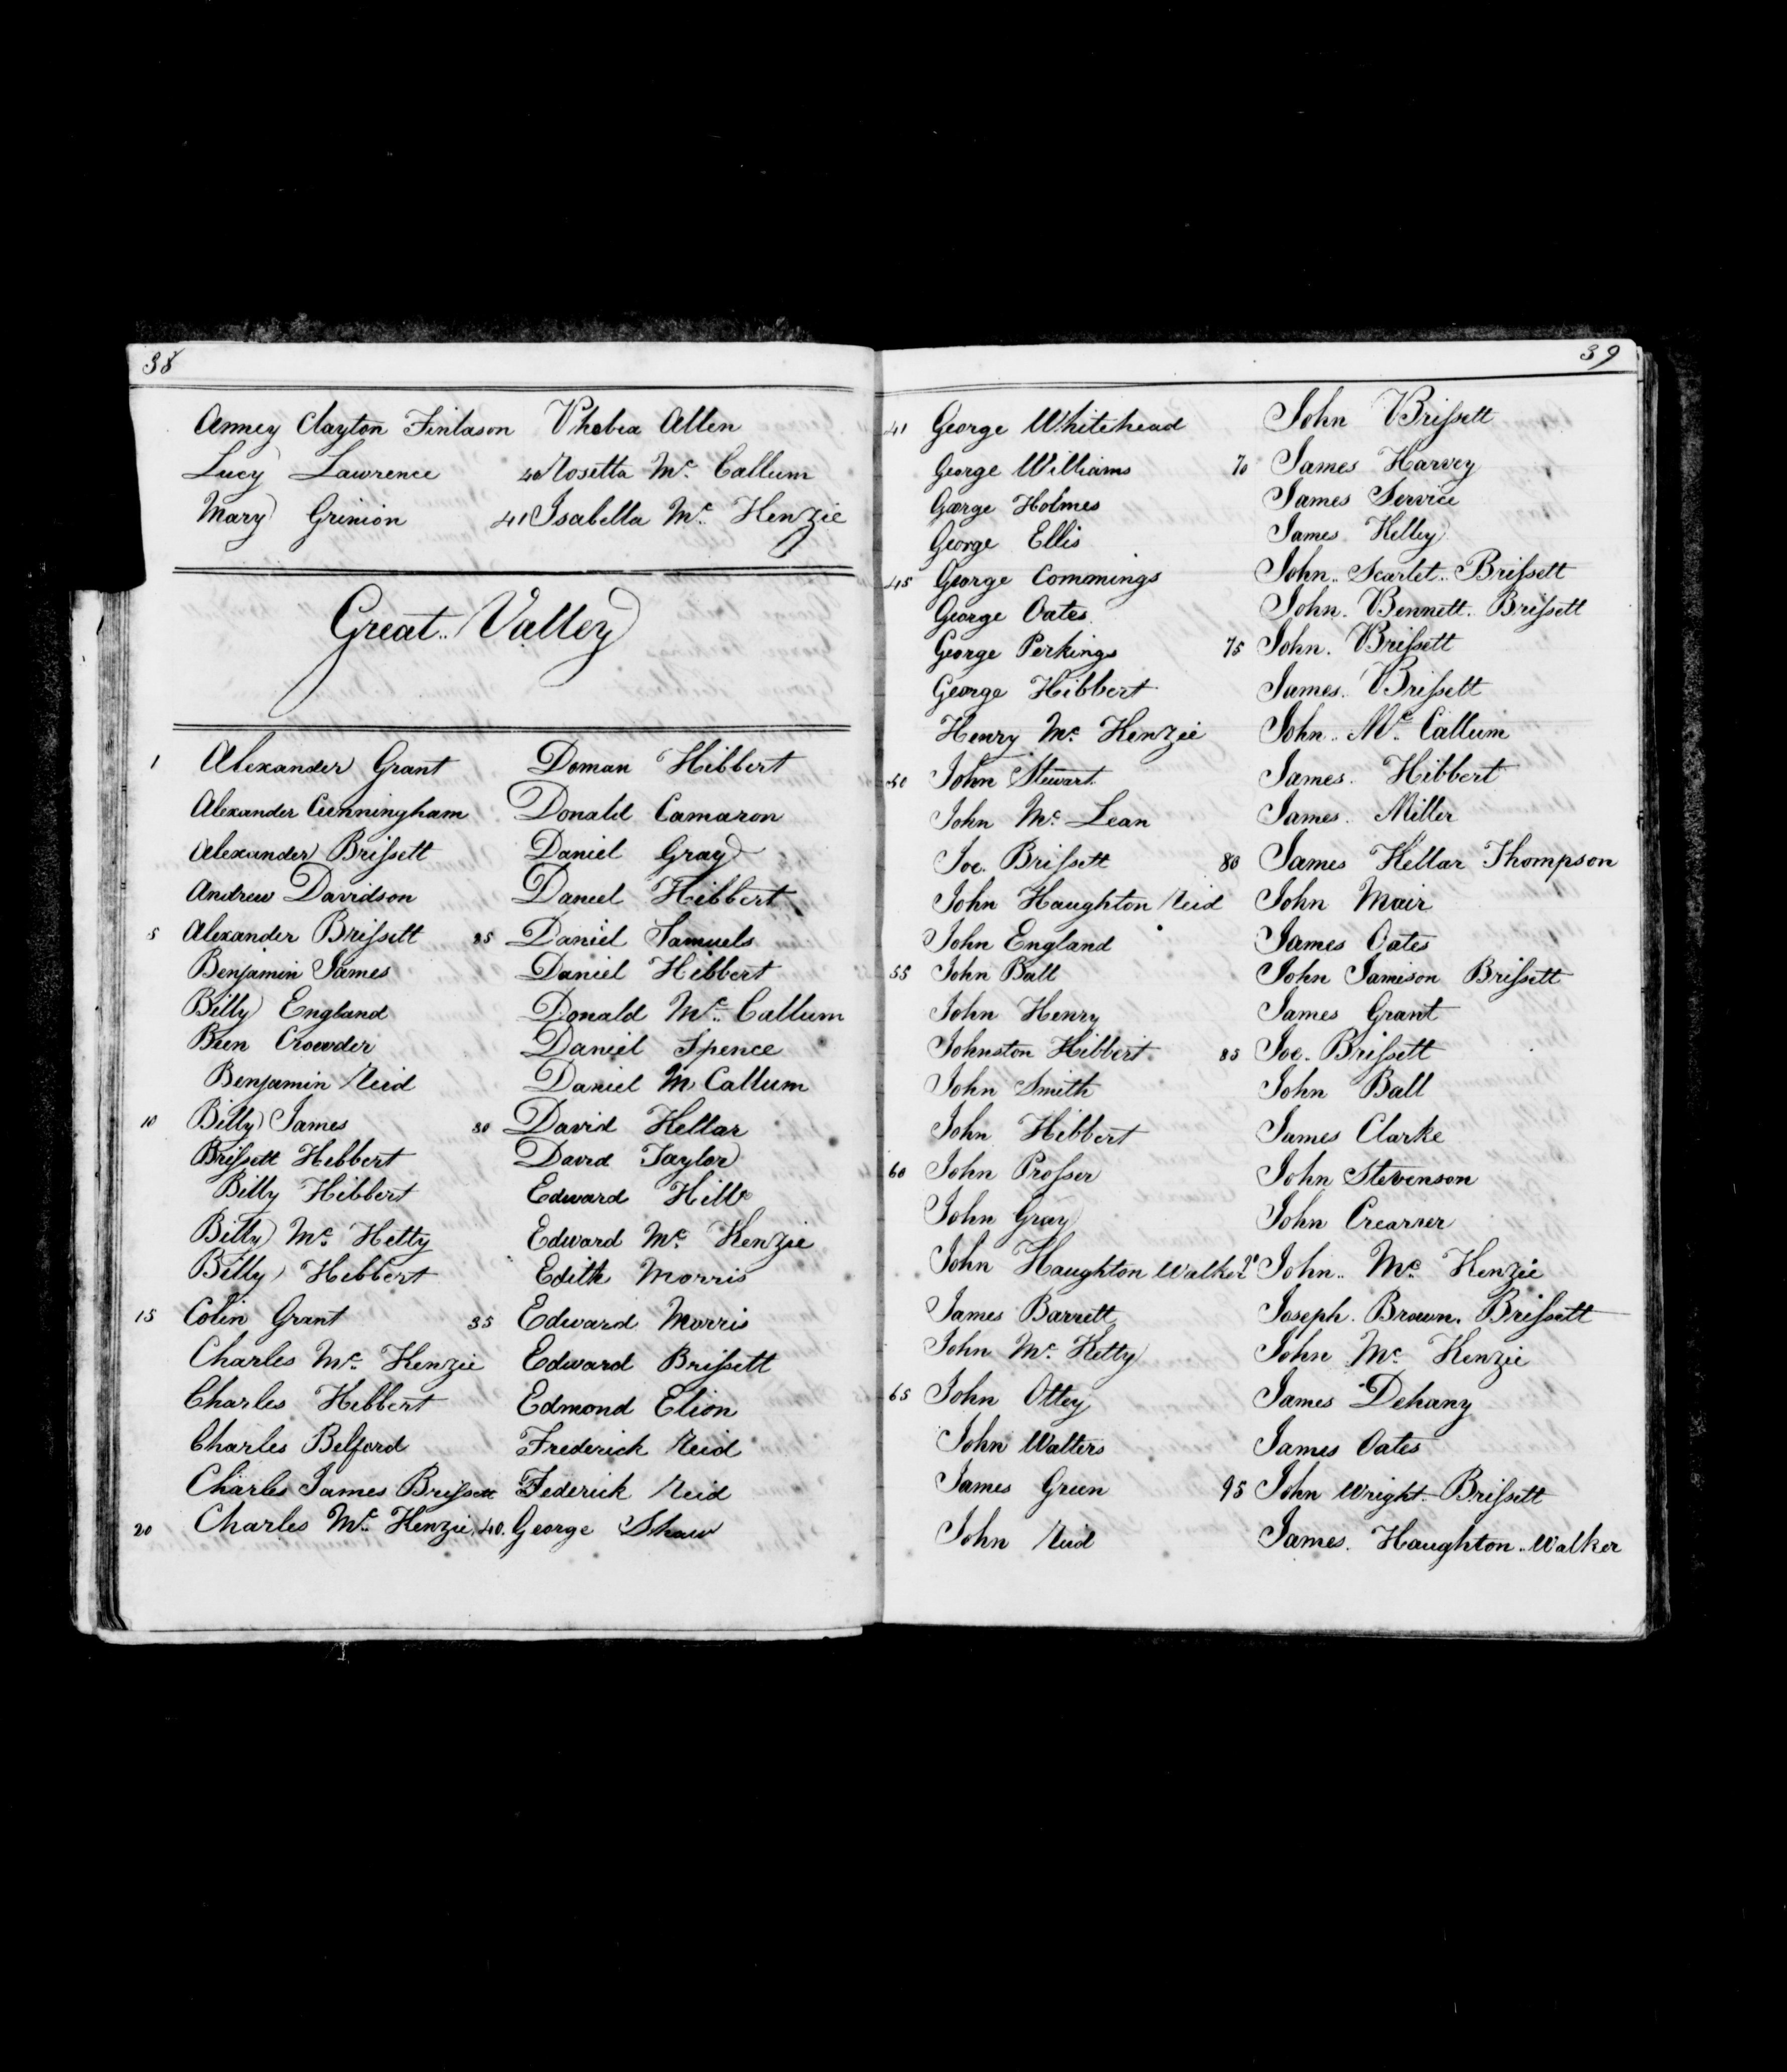 38
Anney Clayton Finlason
Lucy Lawrence
Mary Grinion
Phebea Allen
40 Rosetta Mc. Callum
41 Isabella Mc. Kenzie
Great.. Valley
1 Alexander Grant
Alexander Cunningham
Alexander Brifsett
Andrew Davidson
5 Alexander Brifsett
Benjamin James
Billy England
Been Crowder
Benjamin Reid
10 Billy James
Brifsett Hibbert
Billy Hibbert
Billy Mc. Hetty
Billy Hibbert
15 Colin Grant
Charles Mc. Kenzie
Charles Hibbert
Charles Belford
Charles James Brifsett
20 Charles Mc. Kenzie
Doman Hibbert
Donald Camaron
Daniel Gray
Daniel Hibbert
25 Daniel Samuels
Daniel Hibbert
Donald Mc. Callum
Daniel Spence
Daniel Mc Callum
30 David Kellar
David Taylor
Edward Hill
Edward Mc. Kenzie
Edith Morris
35 Edward Morris
Edward Brifsett
Edmond Elion
Frederick Reid
Federick Reid
40. George Shaw
39
41 George Whitehead
George Williams
George Holmes
George Ellis
45 George Commings
George Oates
George Perkings
George Hibbert
Henry Mc. Kenzie
50 John Stewart
John Mc. Lean
Joe. Brifsett
John Haughton Reid
John England
55 John Ball
John Henry
Johnston Hibbert
John Smith
John Hibbert
60 John Profser
John Gray
John Haughton Walker
James Barrett
John Mc. Ketty
65 John Ottey
John Walters
James Green
John Reid
John Brifsett
70 James Harvey
James Service
James Kelley
John.. Scarlet.. Brifsett
John. Bennett. Brifsett
75 John. Brifsett
James. Brifsett
John.. Mc. Callum
James. Hibbert
James. Miller
80 James Kellar Thompson
John Mair
James Oates
John Jamison Brifsett
James Grant
85 Joe. Brifsett
John Ball
James Clarke
John Stevenson
John Crearver
90 John.. Mc. Kenzie
Joseph. Brown. Brifsett
John Mc. Kenzie
James Dehany
James Oates
95 John Wright. Brifsett
James. Haughton.. Walker